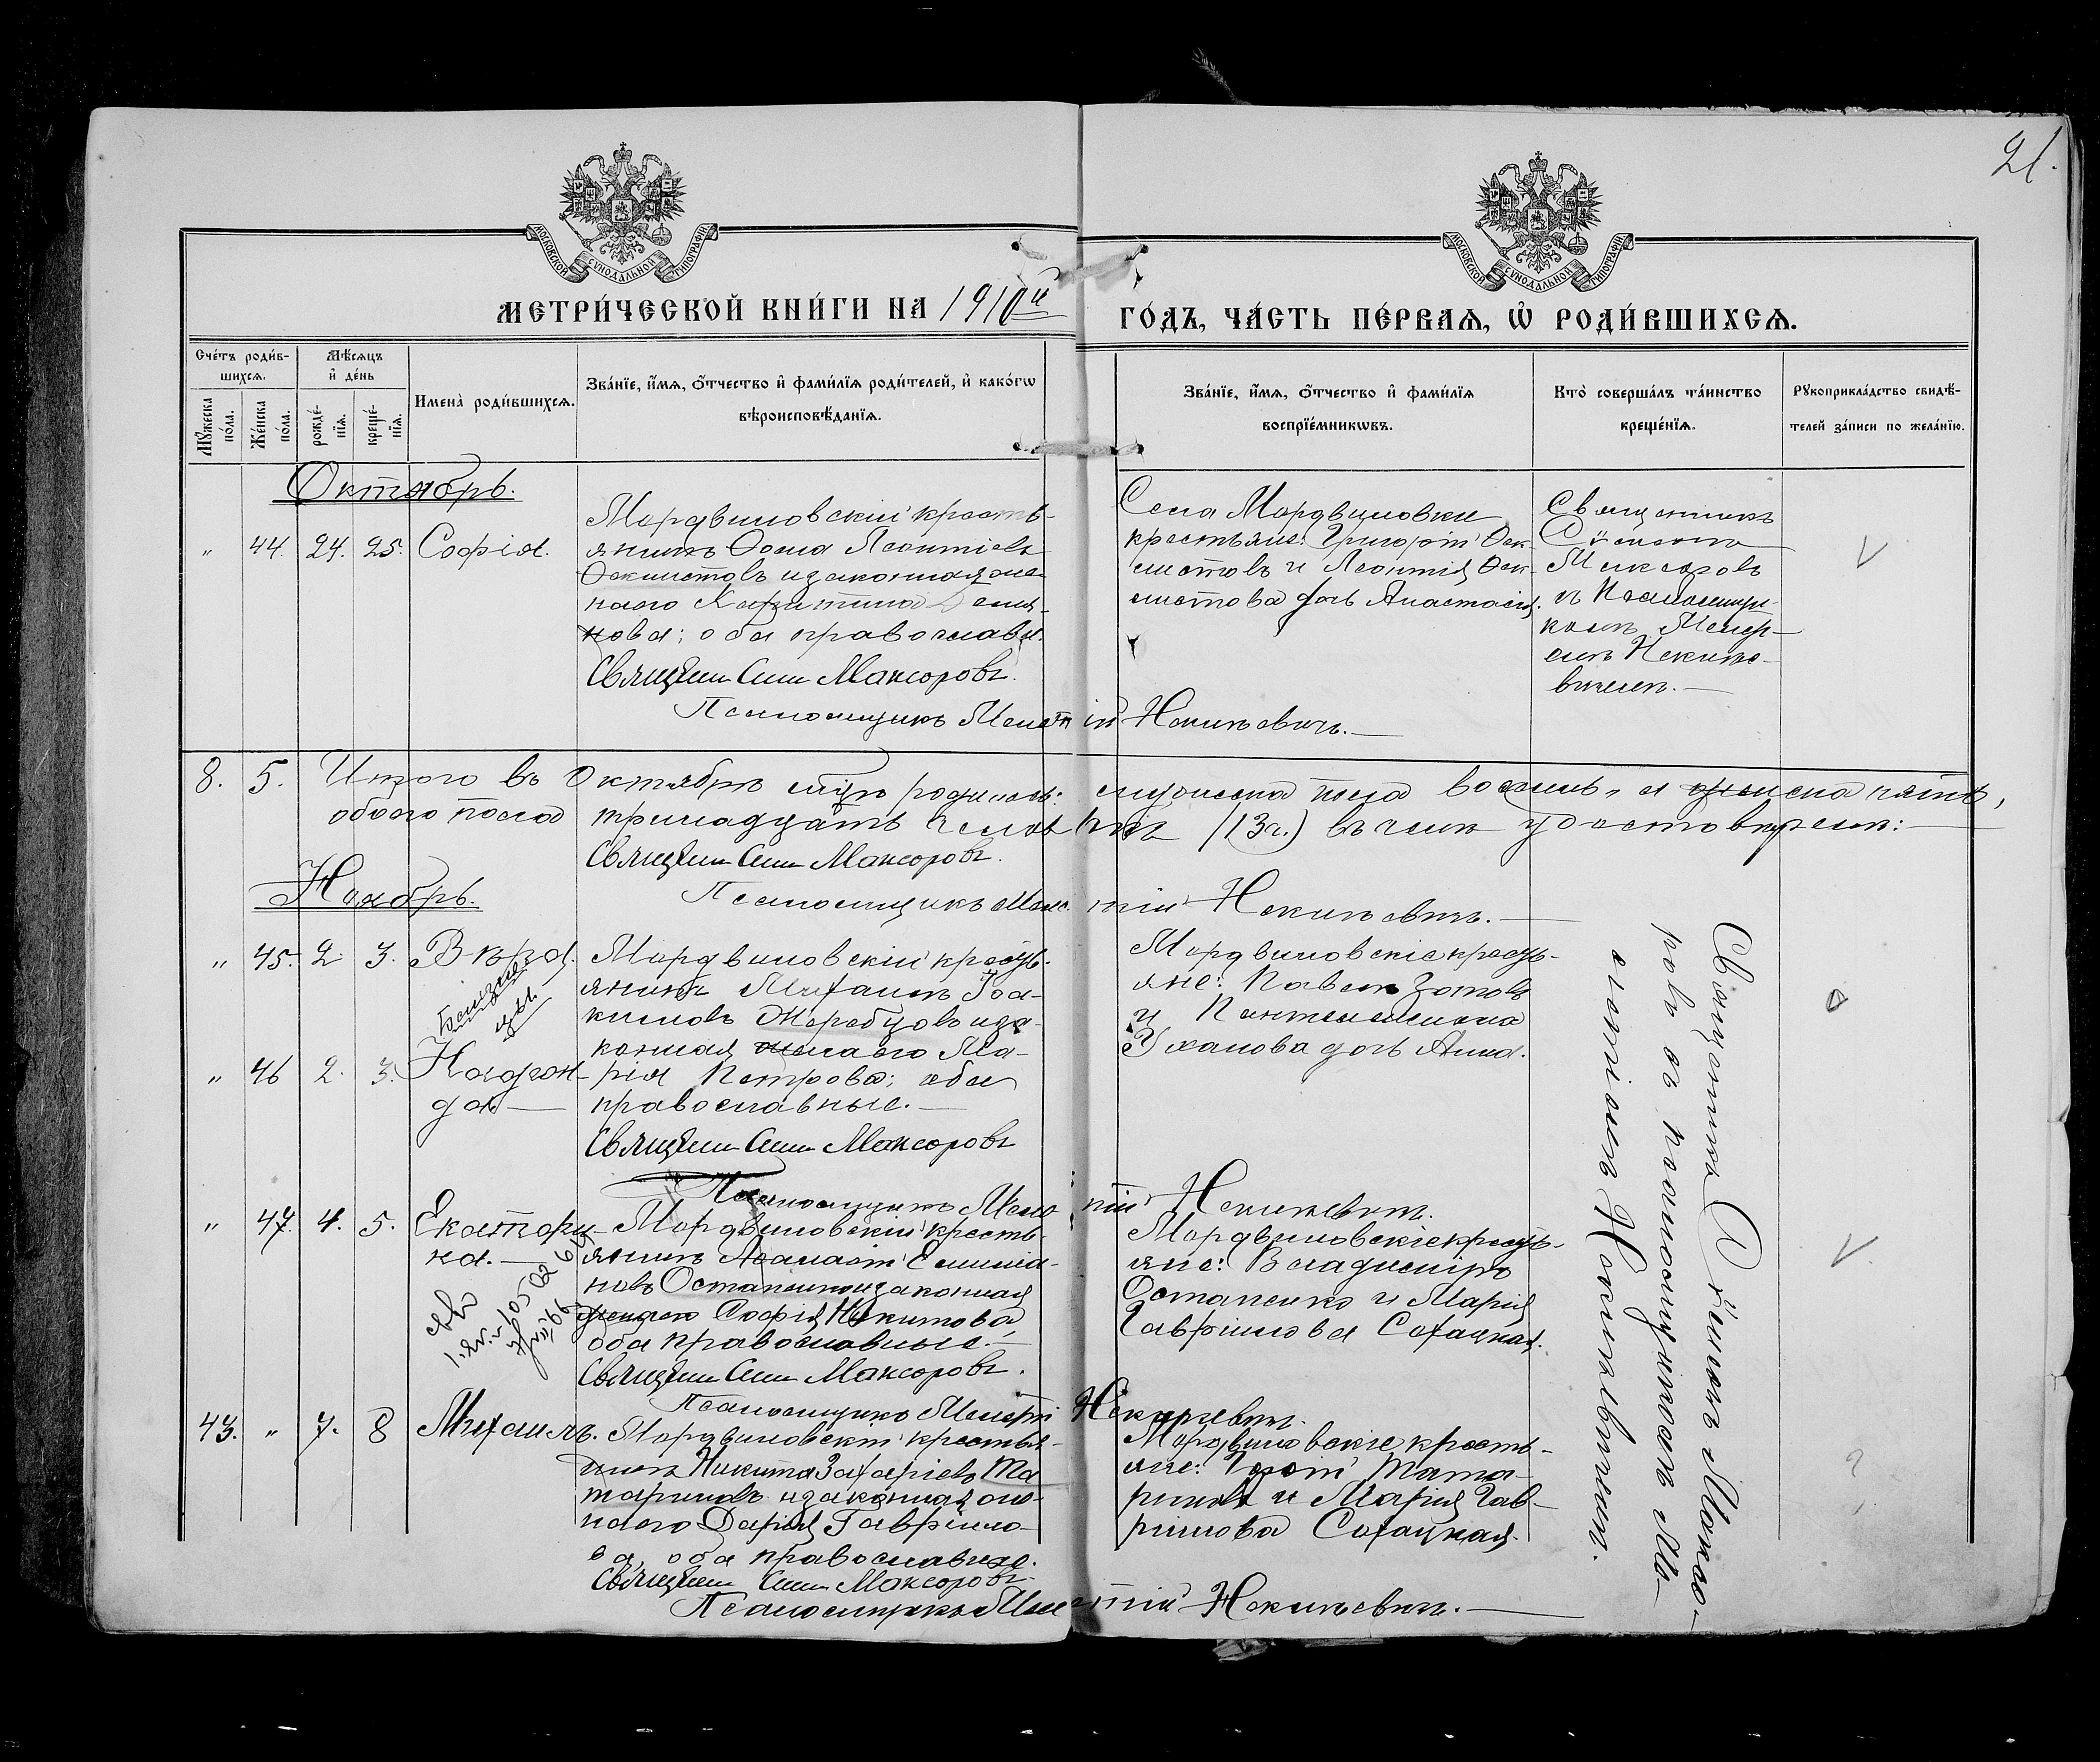 21.
МОСКОВСКОЙ СУНОДАЛЬНОЙ ТИПОГРАФІИ
МОСКОВСКОЙ СУНОДАЛЬНОЙ ТИПОГРАФІИ
МЕТРИ́ЧЕСКОЙ КНИ́ГИ НА 1910й ГО́ДЪ, ЧА́СТЬ ПЕ́РВАѦ, Ѡ РОДИ́ВШИХСѦ.
Сче́тъ роди́в-
шихсѧ.
Мꙋ́жеска по́ла.
Же́нска по́ла.
Мѣ́сѧцъ
и҆ де́нь
рожде́-
нїѧ.
креще́-
нїѧ.
Имена̀ роди́вшихсѧ.
Зва́нїе, и҆́мѧ, ѻ҆́тчество и҆ фами́лїѧ роди́телей, и҆ како́гѡ
вѣроисповѣ́данїѧ.
Зва́нїе, и҆́мѧ, ѻ҆́тчество и҆ фами́лїѧ
воспрїе́мникѡвъ.
Кто̀ соверша́лъ та́инство
креще́нїѧ.
Рꙋкоприкла́дство свидѣ́-
телей за́писи по жела́нїю.
Октябрь.
" 44. 24. 25. Софія.
Мордвиновскій кресть-
янинъ Ѳома Леонтіевъ
Ѳеклистовъ и законная же-
на его
нова; оба православн.
Священ. Сим. Максоровъ.
Псаломщикъ Мелетій Некипѣвичъ.
Села Мордвиновки
крестьяне: Григорій Ѳек-
листовъ и Леонтія Ѳек-
листова дочь Анастасія.
Священникъ
Сѵмеонъ
Максоровъ
съ Псаломщи-
комъ Меле-
емъ Некипѣ-
вичемъ.
V
8. 5. Итого въ Октябрѣ мцѣ родилось: мужеска пола восемь, а женска пять,
обоего пола тринадцать человѣкъ (13ч.) въ чемъ удостовѣряемъ:
Священ. Сим. Максоровъ.
Псаломщикъ Мелетій Некипѣвичъ.
Ноябрь.
" 45. 2. 3. Вѣра.
Близне-
цы
" 46 2. 3. Надеж-
да
Мордвиновскій кресть-
янинъ Михаилъ Іоа-
кимовъ Жеребцовъ и за-
конная жена его Ма-
рія Петрова; оба
православные.
Священ. Сим. Максоровъ
Псаломщикъ Мелетій Некипѣвичъ.
Мордвиновскіе кресть-
яне: Павелъ Зотовъ
и Пантелеимона
Уханова дочь Анна.
Священникъ Сѵмеонъ Максо-
ровъ съ псаломщикомъ Ме-
летіемъ Некипѣвичемъ.
" 47. 4. 5. Екатери-
на.
Мордвиновскій кресть-
янинъ Аѳанасій Емилiа-
новъ Остапенко и законная
жена его Софія Никитова,
оба православные.
Священ. Сим. Максоровъ.
Псаломщикъ Мелетій Некипѣвичъ.
Мордвиновскіе кресть-
яне: Владиміръ
Остапенко и Марія
Гавріилова Сахацкая.
V
43. " 7. 8 Михаилъ.
Мордвиновскій крестья-
нинъ Никита Захаріевъ Та-
тариновъ и законная же-
на его Дарія Гавріило-
ва, оба православные.
Священ. Сим. Максоровъ.
Псаломщикъ Мелетій Некипѣвичъ.
Мордвиновскіе кресть-
яне: Тата-
риновъ и Марія Гав-
ріилова Сахацкая.
?